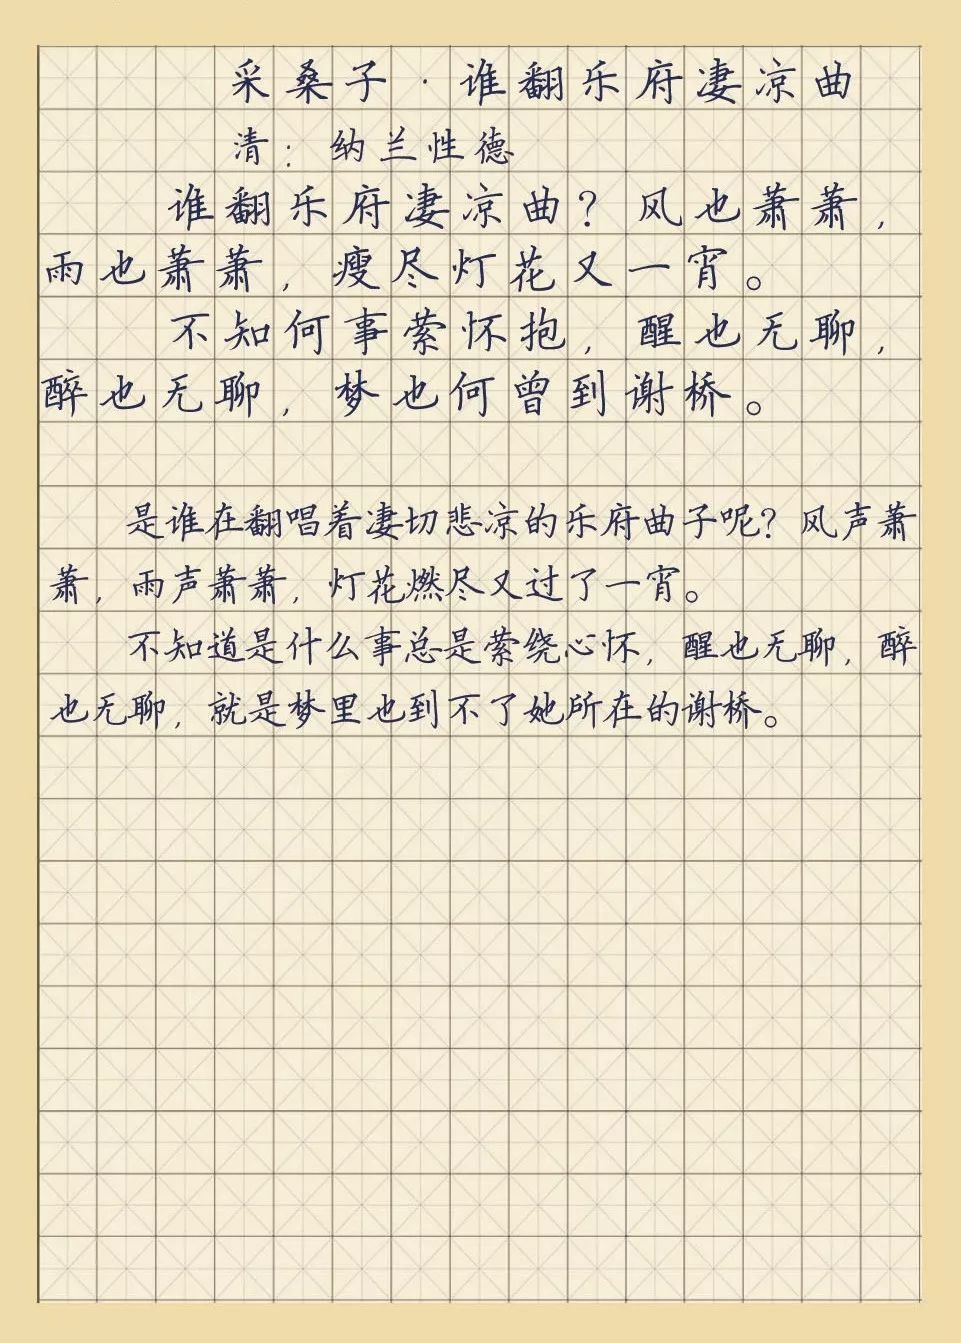 采桑子·谁翻乐府凄凉曲
清：纳兰性德
谁翻乐府凄凉曲？风也萧萧，
雨也萧萧，瘦尽灯花又一宵。
不知何事萦怀抱，醒也无聊，
醉也无聊，梦也何曾到谢桥。
是谁在翻唱着凄切悲凉的乐府曲子呢？风声萧
萧，雨声萧萧，灯花燃尽又过了一宵。
不知道是什么事总是萦绕心怀，醒也无聊，醉
也无聊，就是梦里也到不了她所在的谢桥。